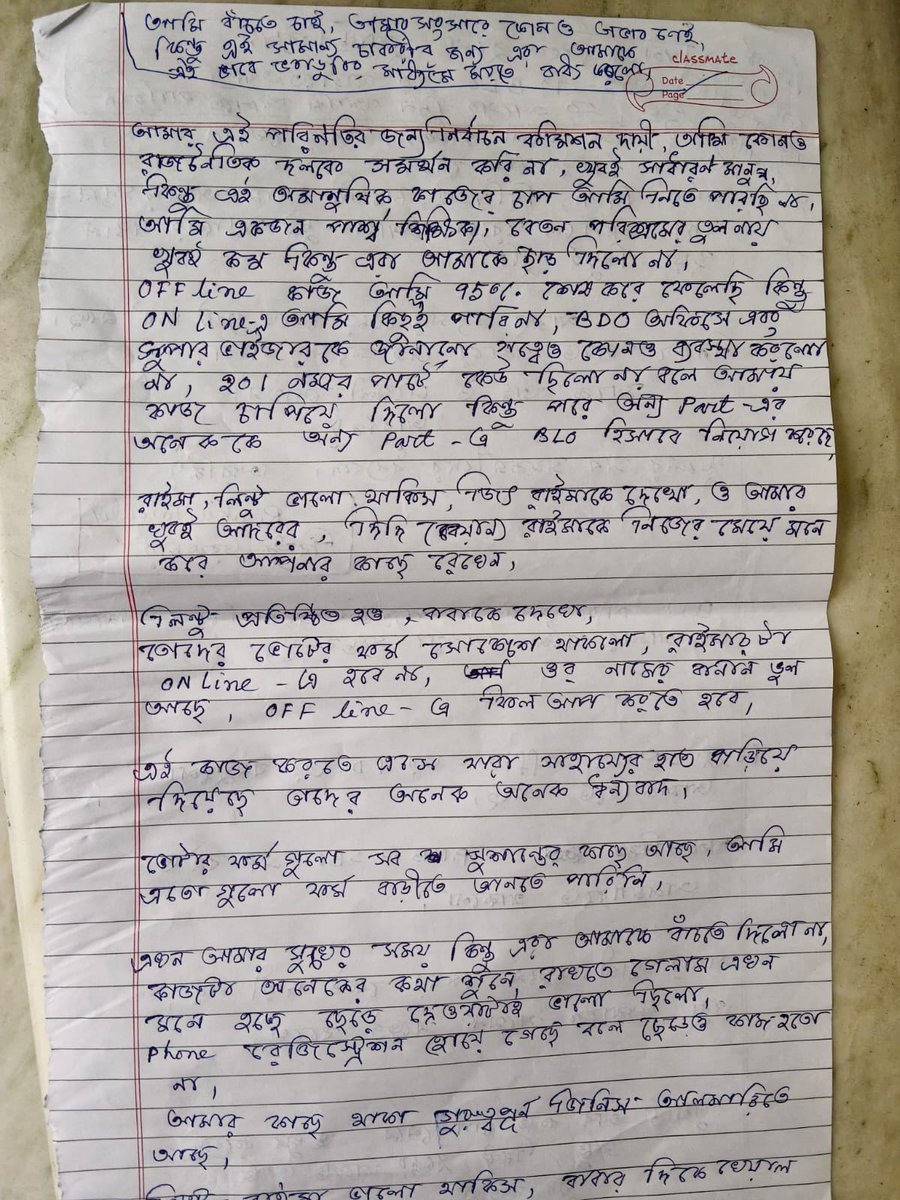 আমি বাঁচতে চাই, আমার সংসারে কোনও অভাব নেই,
কিন্তু এই সামান্য চাকরীর জন্য এরা আমাকে
এই ভাবে ভরাডুবির মাধ্যমে মরতে বাধ্য করলো,
classmate
Date
Page
আমার এই পরিনতির জন্য নির্বাচন কমিশন দায়ী, আমি কোনও
রাজনৈতিক দলকে সমর্থন করি না, খুবই সাধারন মানুষ,
কিন্তু এই অমানুষিক কাজের চাপ আমি নিতে পারছি না,
আমি একজন পার্শ্ব শিক্ষিকা, বেতন পরিশ্রমের তুলনায়
খুবই কম কিন্তু এরা আমাকে ছাড় দিলো না,
OFF line কাজ আমি 95% শেষ করে ফেলেছি কিন্তু
ON line-এ আমি কিছুই পারি না, BDO অফিসে এবং
সুপার ভাইজারকে জানানো সত্ত্বেও কোনও ব্যবস্থা করলো
না, ২০১ নম্বর পার্টে কেউ ছিলো না বলে আমায়
কাজ চাপিয়ে দিলো কিন্তু পরে অন্য Part-এর
অনেককে অন্য Part-এ BLO হিসাবে নিয়োগ করছে,
রাইমা, লিন্টু ভালো থাকিস, রাইমাকে দেখো, ও আমার
খুবই আদরের, দিদি (বেয়ান) রাইমাকে নিজের মেয়ে মনে
করে আপনার কাছে রেখেন,
লিন্টু প্রতিষ্ঠিত হও, বাবাকে দেখো,
তোদের ভোটের ফর্ম শোকেশে থাকলো, রাইমারটা
ON Line-এ হবে না, ওর নামের বানান ভুল
আছে, OFF line-এ ফিল আপ করতে হবে,
এই কাজ করতে এসে যারা সাহায্যের হাত বাড়িয়ে
দিয়েছে তাদের অনেক অনেক ধন্যবাদ,
ভোটার ফর্ম গুলো সব সুশান্তের কাছে আছে, আমি
এতো গুলো ফর্ম বাড়ীতে আনতে পারিনি,
এখন আমার সুখের সময় কিন্তু এরা আমাকে বাঁচতে দিলো না,
কাজটা অনেকের কথা শুনে রাখতে গেলাম এখন
মনে হচ্ছে ছেড়ে দেওয়াটাই ভালো ছিলো,
Phone রেজিস্ট্রেশন হোয়ে গেছে বলে ছেড়েও কাজ হতো
না,
আমার কাছে থাকা জিনিস আলমারিতে
আছে,
ভালো থাকিস, বাবার দিকে খেয়াল